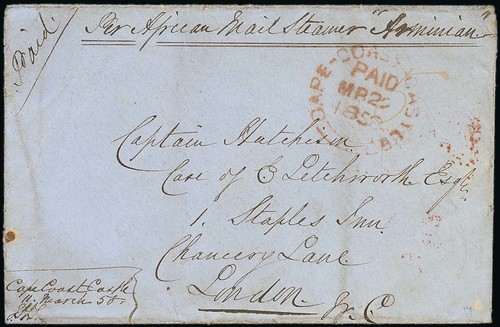 Paid.
Per African Mail Steamer "Armenian"
CAPE-COAST-CASTLE
PAID
MR 22
185
Captain Hutchison
Care of E Letchworth Esqr
1. Staples Inn
Chancery Lane
London. W. C
Cape Coast Castle
March 58.